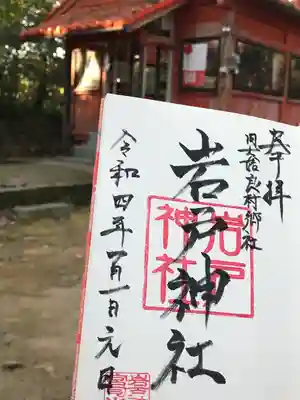 奉拝
旧舎良村郷社
岩戸神社
岩戸
神社
令和四年一月一日元日